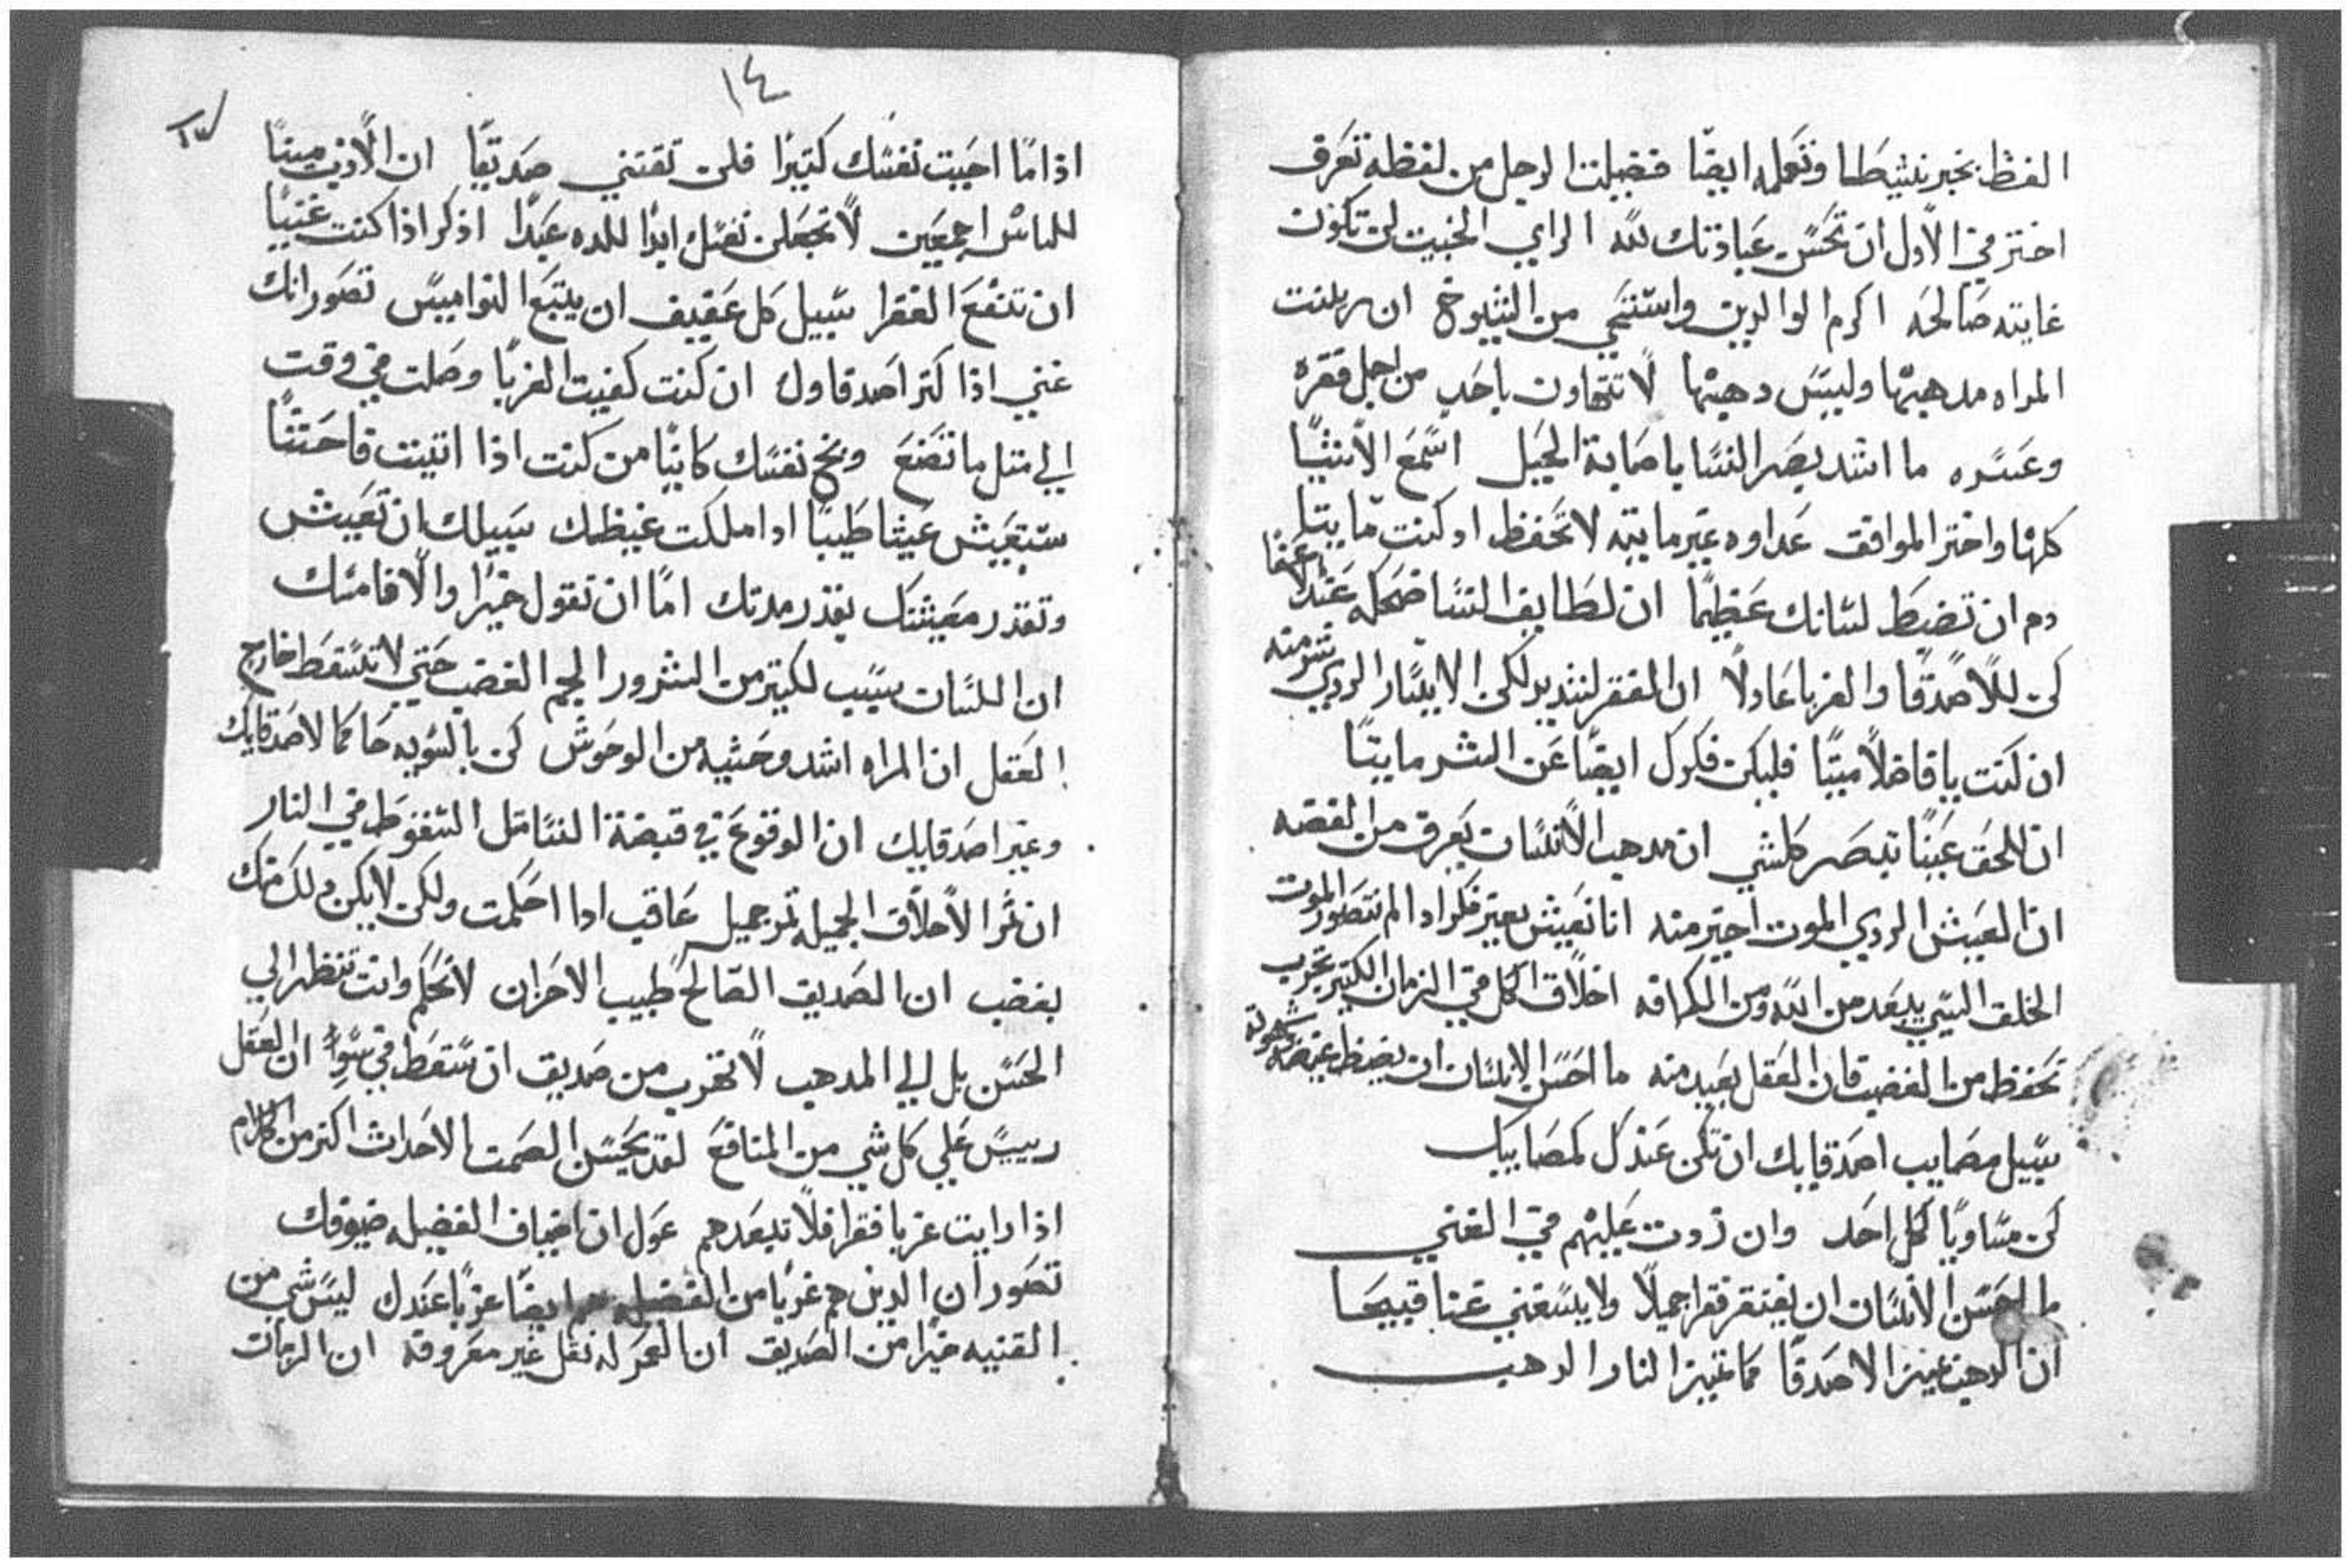 الفظ بخير نشيطا وتعمله ايضا فضيلت الرجل من لفظه تعرف
اختر في الاول ان تحسن عبادتك لله الراي الخبيت لن تكون
غايته صالحه اكرم الوالدين واستحي من الشيوخ ان زينت
المراه مدهبها وليس دهبها لا تتهاون باحد من اجل فقره
وعسره ما اشد بصر النسا باصابة الحيل اسمع الاشيا
كلها واختر الموافق عداوه غير مايته لا تحفظ اد كنت مايتا
دم ان تضبط لسانك عظيما ان لطايف النسا ضحكه عند الاعفا
كن للاصدقا والغربا عادلا ان الفقر لشديد لكن الايسار الردي شر منه
ان كنت يا فاضلا ميتا فليكن فكرك ايضا عن الشر مايتا
ان للحق عينا تبصر كلشي ان مدهب الانسان يعرف من لفضه
ان العيش الردي الموت اخير منه انا نعيش بغير فكر ادا لم نتصور الموت
الخلق السي يبعد من الله ومن الكرافه اخلاق الكل في الزمان الكتير تجرب
تحفظ من الغضب فان العقل بعيد منه ما احسن الانسان ان يضبط غيضه وشهوته
سبيل مصايب اصدقايك ان تكن عندك كمصايبك
كن مساويا لكل احد وان زدت عليهم في الغني
ما احسن الانسان ان يفتقر فقرا جميلا ولا يستغني غنا قبيحا
ان الدهر يميز الاصدقا كما تميز النار الدهب
١٤
١٣
اذا ما احببت نفسك كتيرا فلن تقتني صديقا ان الاذن مينا
للناس اجمعين لا تجعلن نفسك ابدا للده عبدا اذكر اذا كنت غنيا
ان تنفع الفقرا سبيل كل عفيف ان يتبع النواميس تصور انك
غني اذا كتر اصدقاوك ان كنت كفيت الغربا وصلت في وقت
الي متل ما تصنع ونح نفسك كاينا من كنت اذا اتينت فاحتتا
ستعيش عيشا طيبا ادا ملكت غيظك سبيلك ان تعيش
وتقدر معيشتك بقدر مدتك اما ان تقول خيرا والا فامسك
ان اللسان سبب لكتير من الشرور الجم الغضب حتي لا تسقط خارج
العقل ان المراه اشد وحشيه من الوحوش كن بالسويه حاكما لاصدقايك
وغير اصدقايك ان الوقوع في قبضة النسا متل السقوط في النار
ان تمر الاخلاق الجميله تمر جميل عاقب ادا احكمت ولكن لا يكن دلك منك
بغضب ان الصديق الصالح طبيب الاحزان لا تحكم وانت تنظر الي
الحسن بل الي المدهب لا تهرب من صديق ان سقط في سوا ان العقل
رييس علي كل شي من المنافع لقد يحسن الصمت الاحداث اكتر من الكلام
اذا رايت غربا فقرا فلا تبعدهم عول ان اضياف الفضيله ضيوفك
تصور ان الدين هم غربا من الفضيله هم ايضا غربا عندك ليس شي من
القنيه خيرا من الصديق ان العمر له نقل غير معروفه ان الزمان